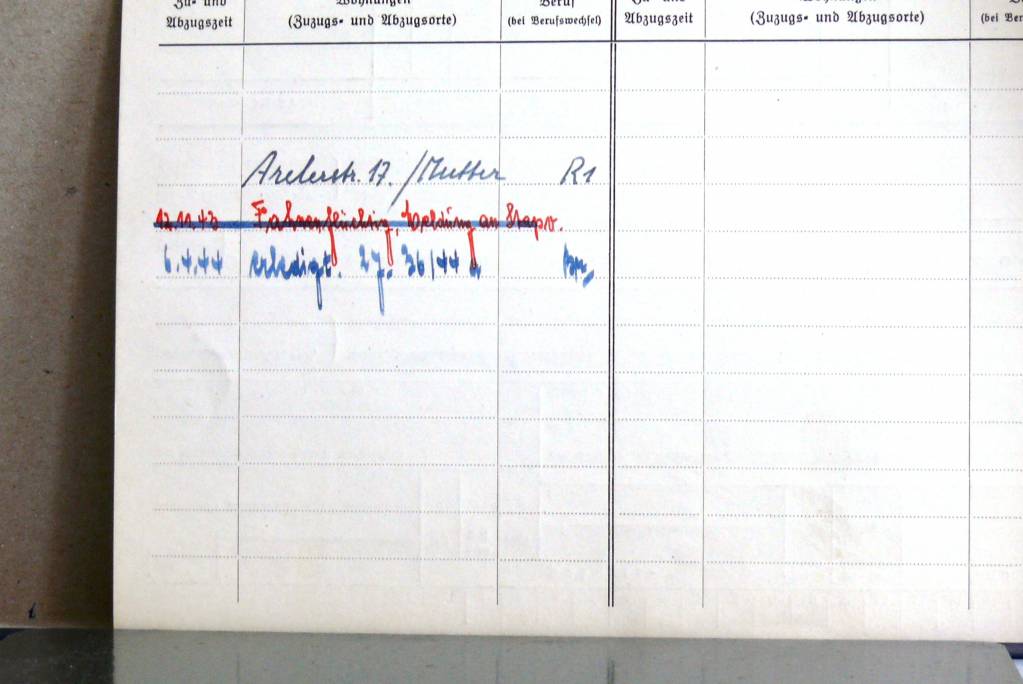 Zu- und Wohnungen Beruf Zu- und Wohnungen
Abzugszeit (Zuzugs- und Abzugsorte) (bei Berufswechsel) Abzugszeit (Zuzugs- und Abzugsorte) (bei Ber
Arelerstr. 17. /Mutter R1
12.11.43 Fahnenflüchtig, Meldung an Stapo.
6.4.44 erledigt. 27. 36/44